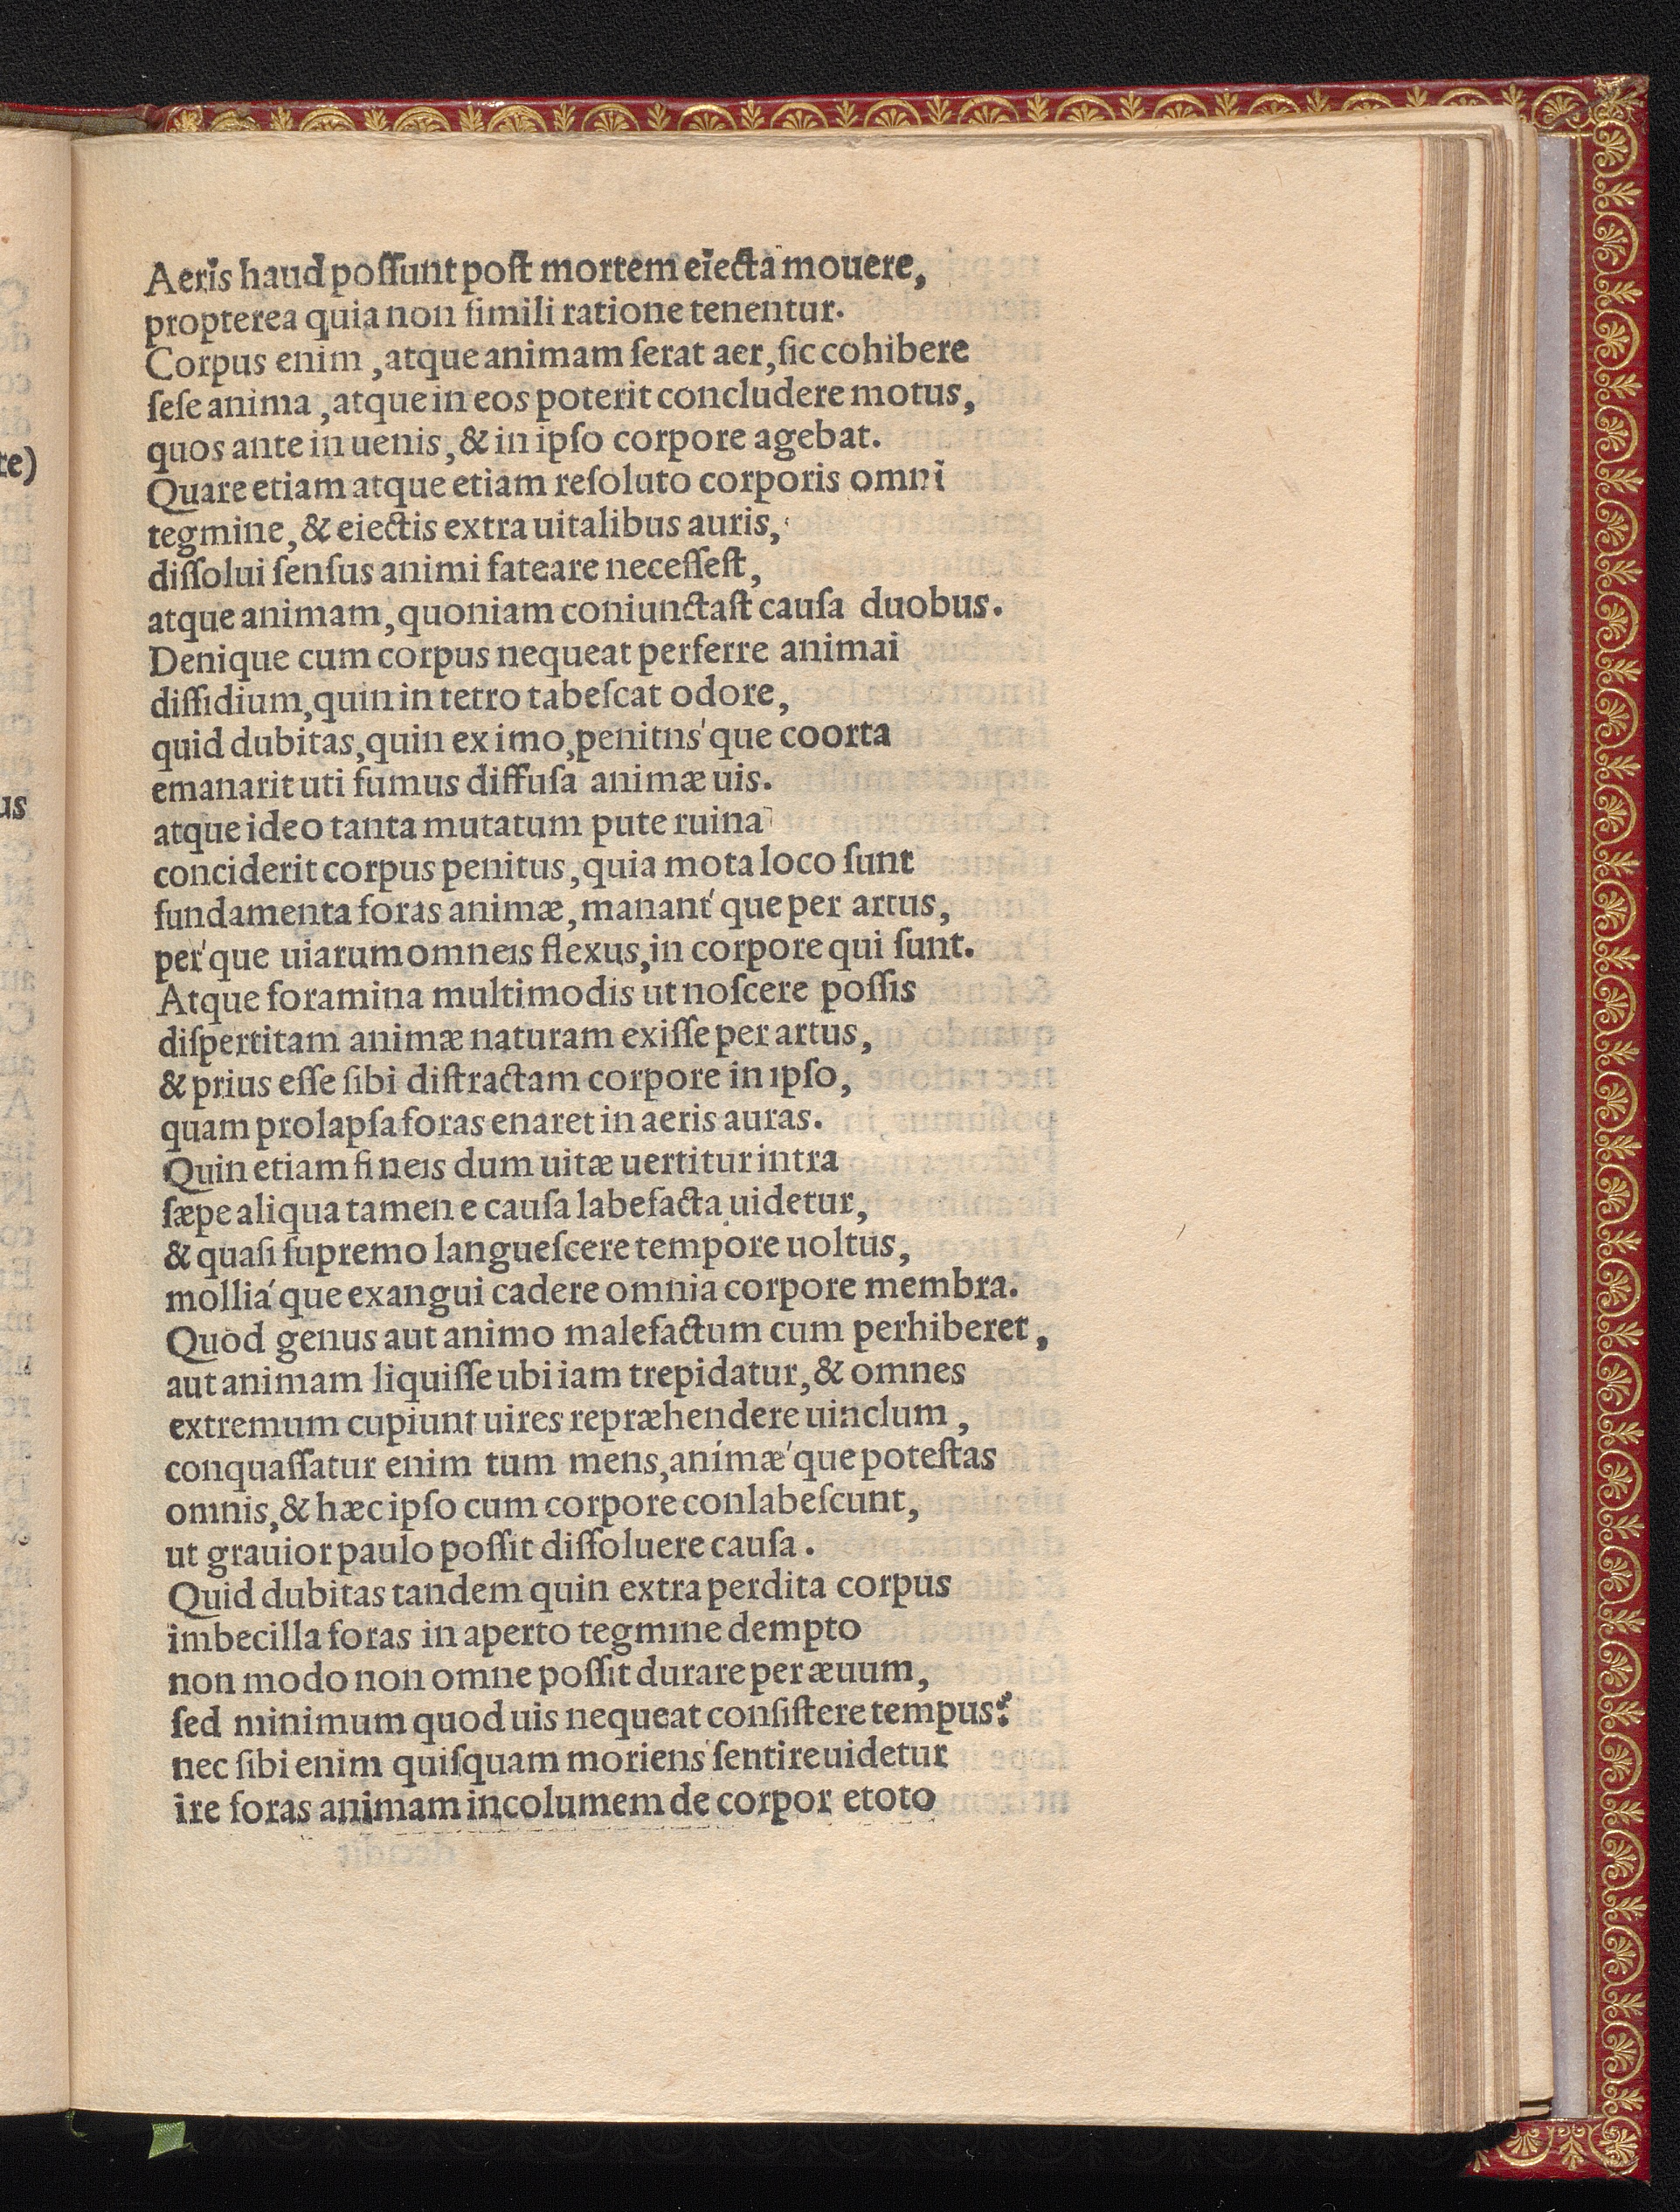 Aeris haud poſſunt poſt mortem eiecta mouere,
propterea quia non ſimili ratione tenentur.
Corpus enim, atque animam ſerat aer, ſic cohibere
ſeſe anima, atque in eos poterit concludere motus,
quos ante in uenis, & in ipſo corpore agebat.
Quare etiam atque etiam reſoluto corporis omni
tegmine, & eiectis extra uitalibus auris,
diſſolui ſenſus animi fateare neceſſeſt,
atque animam, quoniam coniunctaſt cauſa duobus.
Denique cum corpus nequeat perferre animai
diſſidium, quin in tetro tabeſcat odore,
quid dubitas, quin ex imo, penitns'que coorta
emanarit uti fumus diffuſa animæ uis.
atque ideo tanta mutatum pute ruina
conciderit corpus penitus, quia mota loco ſunt
fundamenta foras animæ, manant'que per artus,
per'que uiarum omneis flexus, in corpore qui ſunt.
Atque foramina multimodis ut noſcere poſſis
diſpertitam animæ naturam exiſſe per artus,
& prius eſſe ſibi diſtractam corpore in ipſo,
quam prolapſa foras enaret in aeris auras.
Quin etiam fi neis dum uitæ uertitur intra
ſæpe aliqua tamen e cauſa labefacta uidetur,
& quaſi ſupremo langueſcere tempore uoltus,
mollia'que exangui cadere omnia corpore membra.
Quod genus aut animo malefactum cum perhiberet,
aut animam liquiſſe ubi iam trepidatur, & omnes
extremum cupiunt uires repræhendere uinclum,
conquaſſatur enim tum mens, animæ'que poteſtas
omnis, & hæc ipſo cum corpore conlabeſcunt,
ut grauior paulo poſſit diſſoluere cauſa.
Quid dubitas tandem quin extra perdita corpus
imbecilla foras in aperto tegmine dempto
non modo non omne poſſit durare per æuum,
ſed minimum quod uis nequeat conſiſtere tempus?
nec ſibi enim quiſquam moriens ſentire uidetur
ire foras animam incolumem de corpor etoto